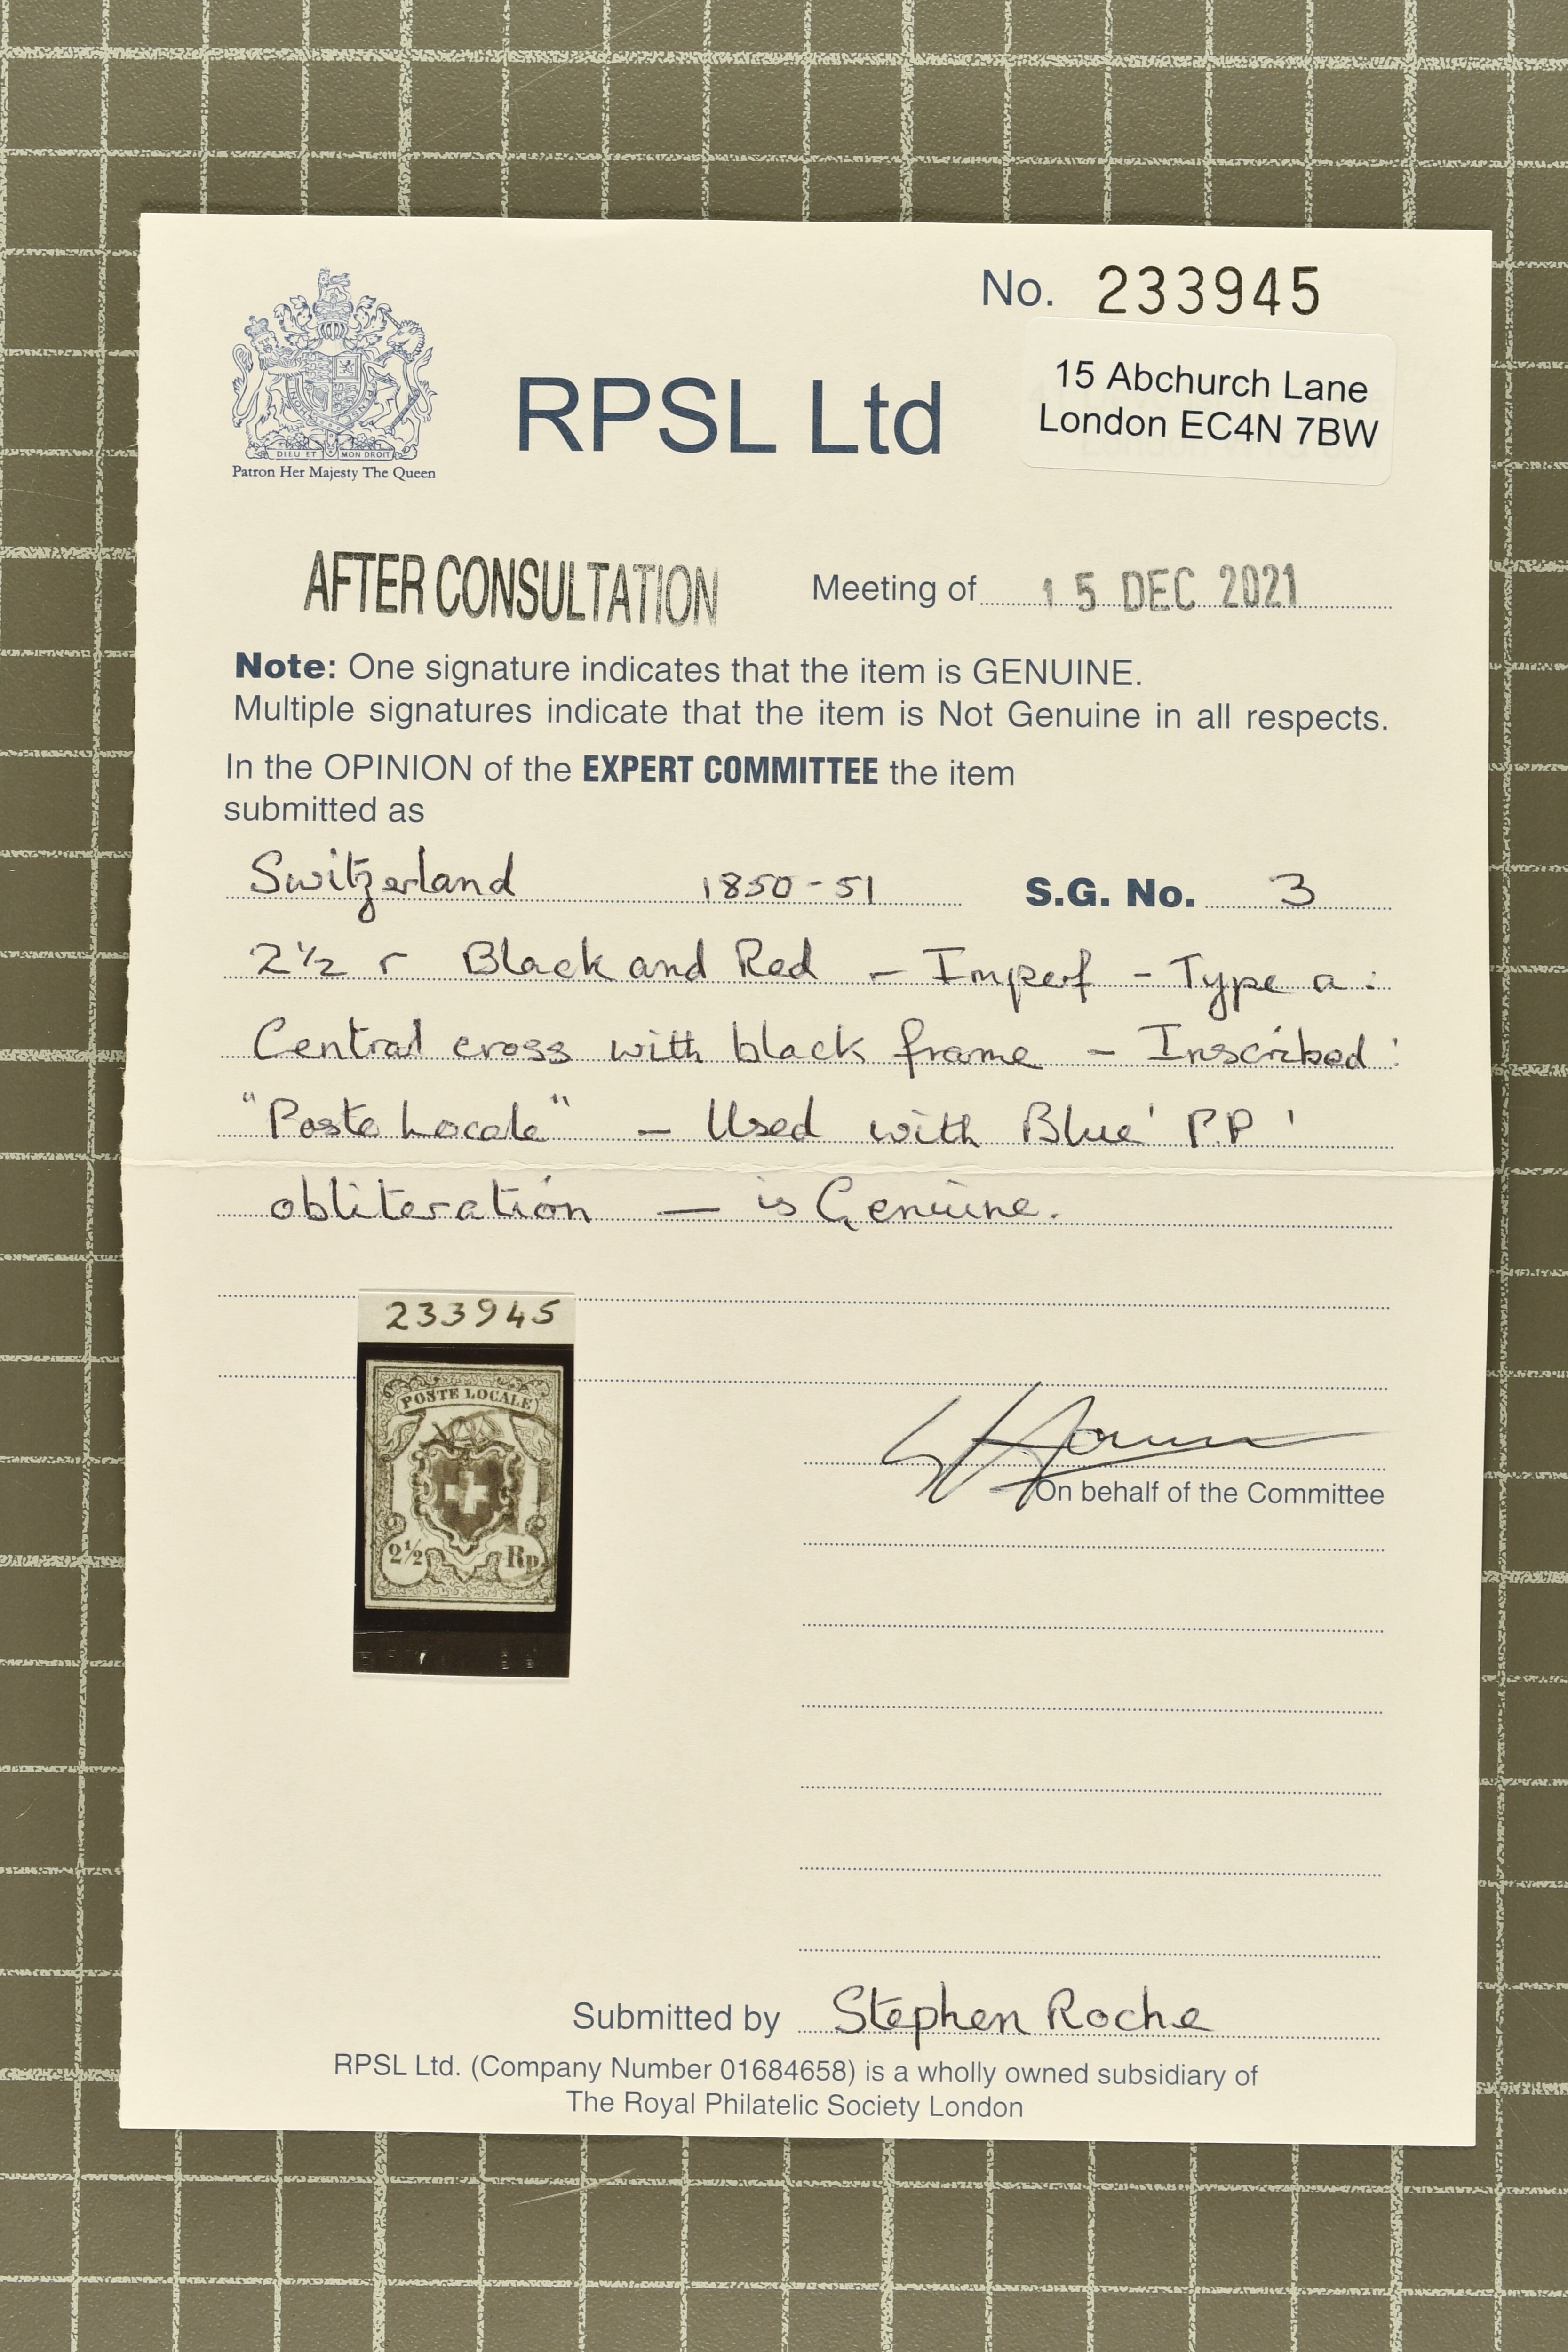 No. 233945
15 Abchurch Lane
London EC4N 7BW
RPSL Ltd
DIEU ET MON DROIT
Patron Her Majesty The Queen
AFTER CONSULTATION
Meeting of 15 DEC 2021
Note: One signature indicates that the item is GENUINE.
Multiple signatures indicate that the item is Not Genuine in all respects.
In the OPINION of the EXPERT COMMITTEE the item
submitted as
Switzerland 1850-51 S.G. No. 3
2½ r Black and Red - Imperf - Type a:
Central cross with black frame - Inscribed:
"Poste Locale" - Used with Blue 'P.P'
obliteration - is Genuine.
233945
POSTE LOCALE
2½ Rp.
On behalf of the Committee
Submitted by Stephen Roche
RPSL Ltd. (Company Number 01684658) is a wholly owned subsidiary of
The Royal Philatelic Society London